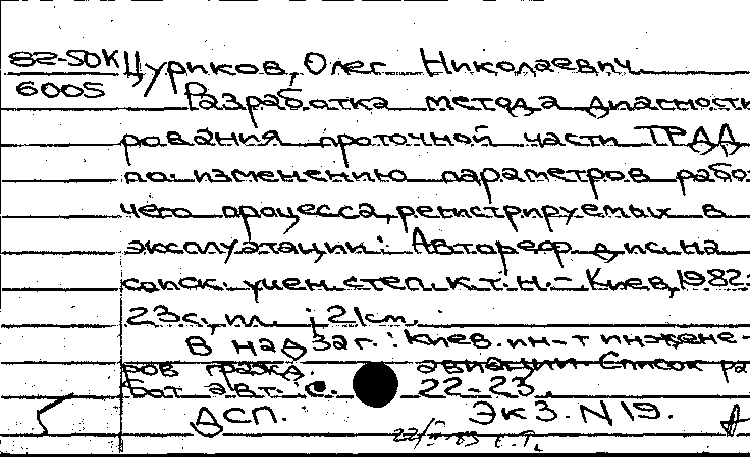 82-50К Цуриков, Олег Николаевич
6005 Разработка метода диагности
рования проточной части ТРДД
по изменению параметров рабо
чего процесса, регистрируемых в
эксплуатации: Автореф. дис. на
соиск. учен. степ. к.т.н. - Киев, 1982.
23 с., ил. ; 21 cm.
В надзаг.: Киев. ин-т инжене-
ров гражд. авиации. Список ра
бот авт.: с. 22-23.
ДСП. Экз. N 19.